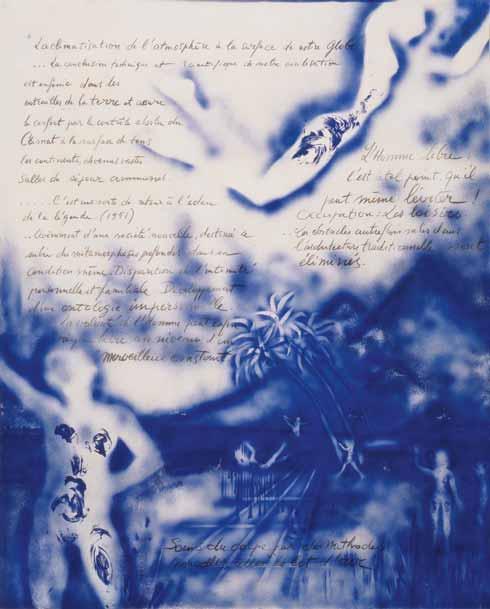 La climatisation de l'atmosphère à la surface de notre Globe
...La conclusion technique et scientifique de notre civilisation
est enfouie dans les
entrailles de la terre et assure
le confort par le contrôle absolu du
Climat à la surface de tous
les continents, devenus vastes
salles de séjour communes.
.....C'est une sorte de retour à l'éden
de la légende (1951)
...Avènement d'une société nouvelle, destinée à
subir des métamorphoses profondes dans sa
condition même. Disparition de l'intimité
personnelle et familiale. Développement
d'une ontologie impersonnelle
La volonté de l'Homme peut enfin
au niveau d'un
Merveilleux constant
L'Homme libre
l'est à tel point, qu'il
peut même léviter !
Occupation: Les loisirs
..Les obstacles autrefois subis dans
l'architecture traditionnelle sont
éliminés.
Soins du corps par des méthodes
nouvelles, d'air